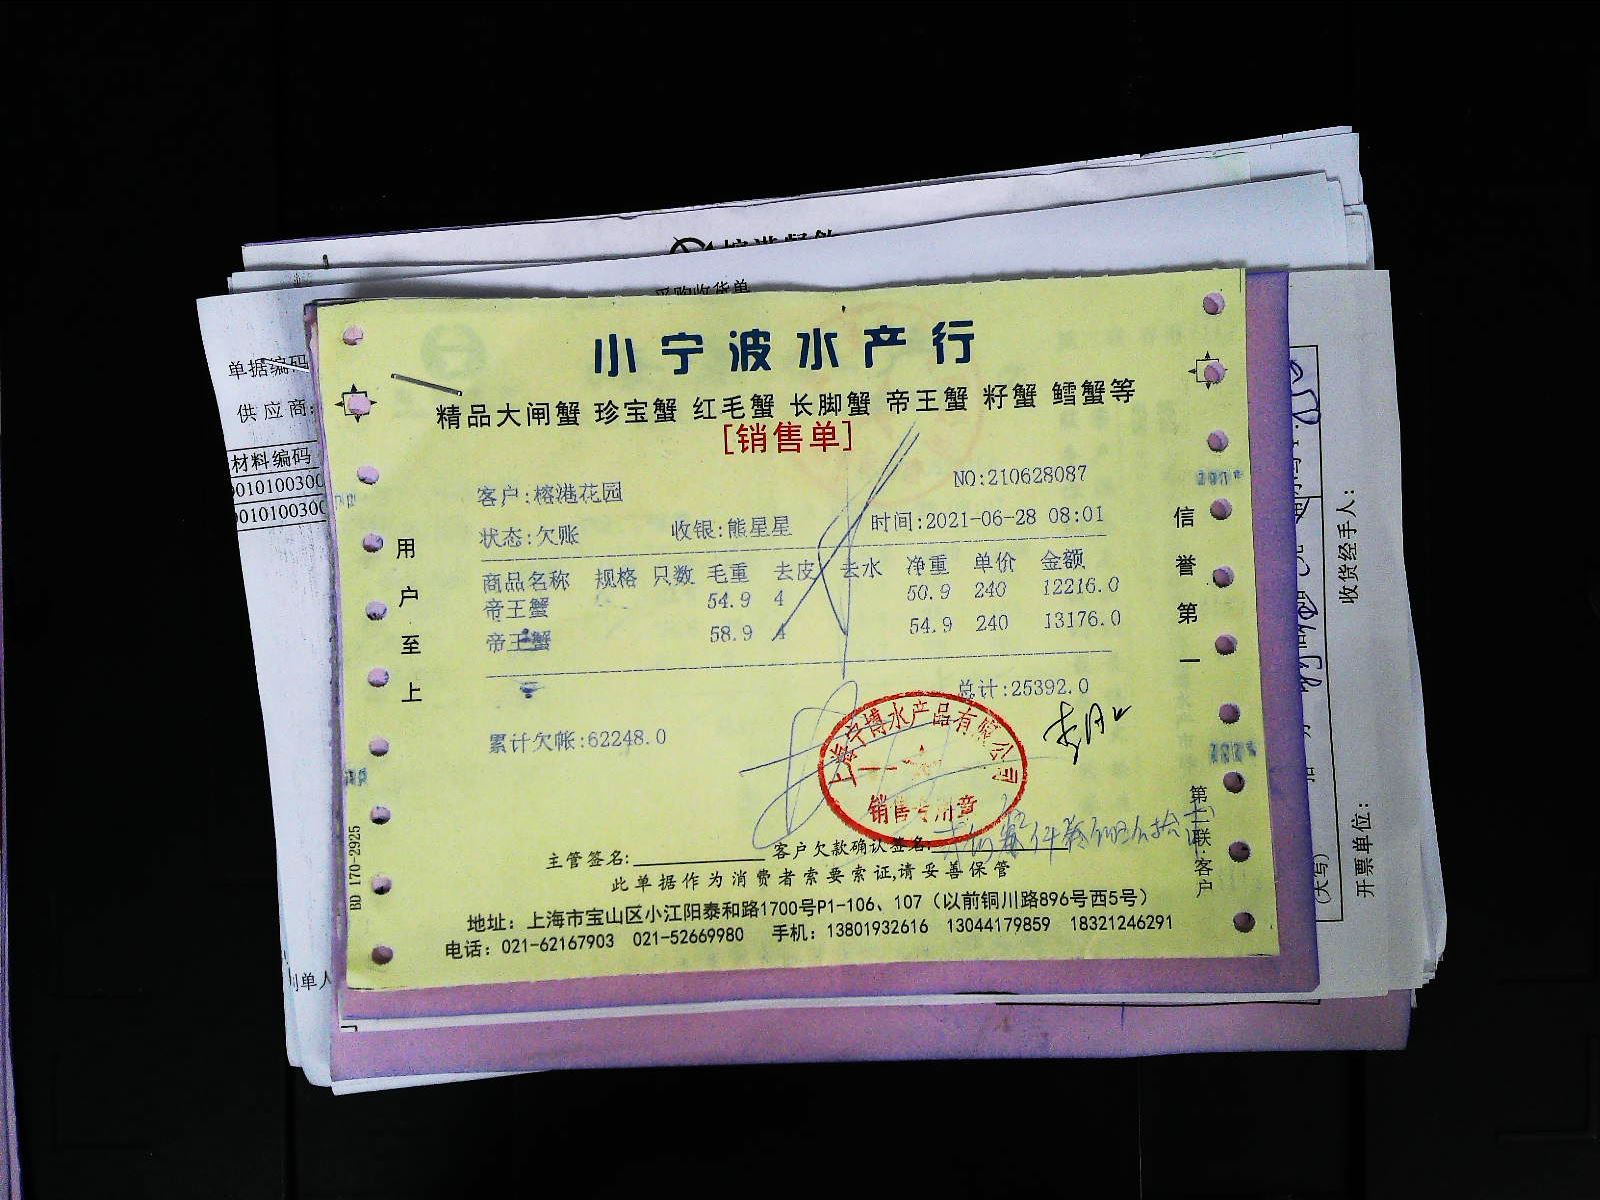 采购收货单
单据编码
供应商:
材料编码
0010100300
0010100300
小宁波水产行
精品大闸蟹 珍宝蟹 红毛蟹 长脚蟹 帝王蟹 籽蟹 鳕蟹等
[销售单]
客户:榕港花园
NO:210628087
状态:欠账 收银:熊星星 时间:2021-06-28 08:01
商品名称 规格 只数 毛重 去皮 去水 净重 单价 金额
帝王蟹 54.9 4 50.9 240 12216.0
帝王蟹 58.9 4 54.9 240 13176.0
总计:25392.0
累计欠帐:62248.0
上海宁博水产品有限公司
销售专用章
主管签名: 客户欠款确认签名:
此单据作为消费者索要索证,请妥善保管
地址：上海市宝山区小江阳泰和路1700号P1-106、107（以前铜川路896号西5号）
电话：021-62167903 021-52669980 手机：13801932616 13044179859 18321246291
用户至上
信誉第一
第二联:客户
BD 170-2925
收货经手人：
开票单位：
(大写)